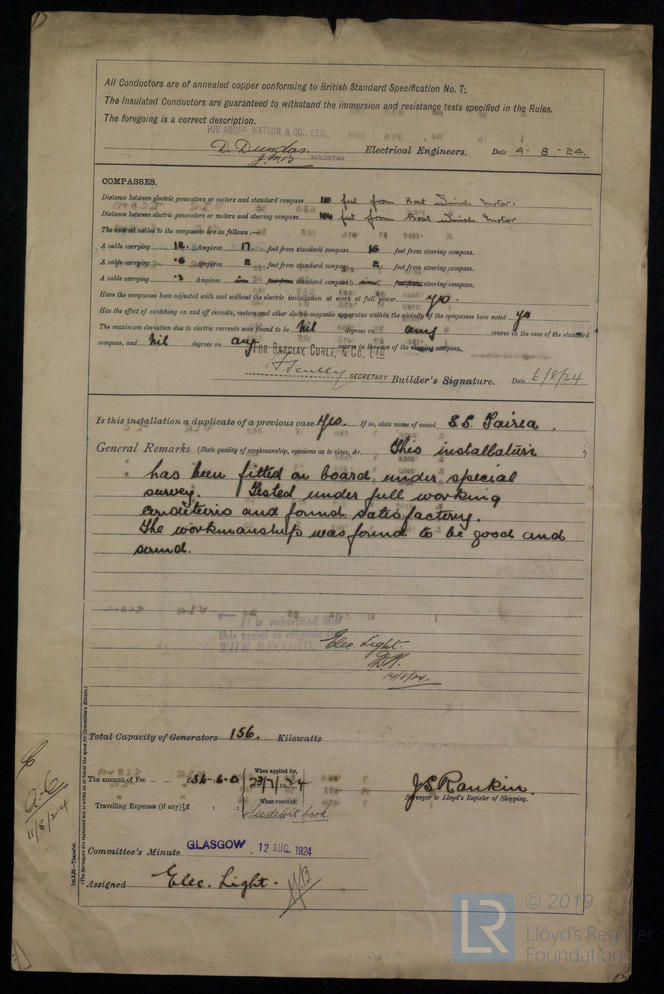 All Conductors are of annealed copper conforming to British Standard Specification No. 7.
The Insulated Conductors are guaranteed to withstand the immersion and resistance tests specified in the Rules.
The foregoing is a correct description.
FOR WATSON & CO., LTD.,
D. Dundas. Electrical Engineers. Date 4-8-24.
DIRECTOR
COMPASSES.
Distance between electric generators or motors and standard compass 110 feet from Boat winch motor.
Distance between electric generators or motors and steering compass 104 feet from Boat winch motor
The nearest cables to the compasses are as follows:—
A cable carrying 12. Ampères 17. feet from standard compass 16 feet from steering compass.
A cable carrying .6 Ampères 2 feet from standard compass 2. feet from steering compass.
A cable carrying .3 Ampères in feet from standard compass in feet from steering compass.
Have the compasses been adjusted with and without the electric installation at work at full power yes.
Has the effect of switching on and off circuits, motors and other electro-magnetic apparatus within the vicinity of the compasses been noted yes
The maximum deviation due to electric currents was found to be Nil degrees on any course in the case of the standard
compass, and Nil degrees on any course in the case of the steering compass.
FOR BARCLAY, CURLE, & CO., LTD
SECRETARY Builder's Signature. Date 6/8/24
Is this installation a duplicate of a previous case Yes. If so, state name of vessel S.S. Tairea.
General Remarks (State quality of workmanship, opinions as to class, &c. This installation
has been fitted on board under special
survey. Tested under full working
conditions and found satisfactory.
The workmanship was found to be good and
sound.
It is submitted that
this vessel is eligible
THE RECORD. Elec. Light.
14/8/24.
Total Capacity of Generators 156. Kilowatts
The amount of Fee ... ... £54-6-0 When applied for, 23/7/24
J S Rankin.
Surveyor to Lloyd's Register of Shipping.
Travelling Expenses (if any) £ : : When received,
11/8/24
Committee's Minute GLASGOW 12 AUG. 1924
Assigned Elec. Light.
Im.8.23.—Transfer.
© 2019
LR Lloyd's Register
Foundation